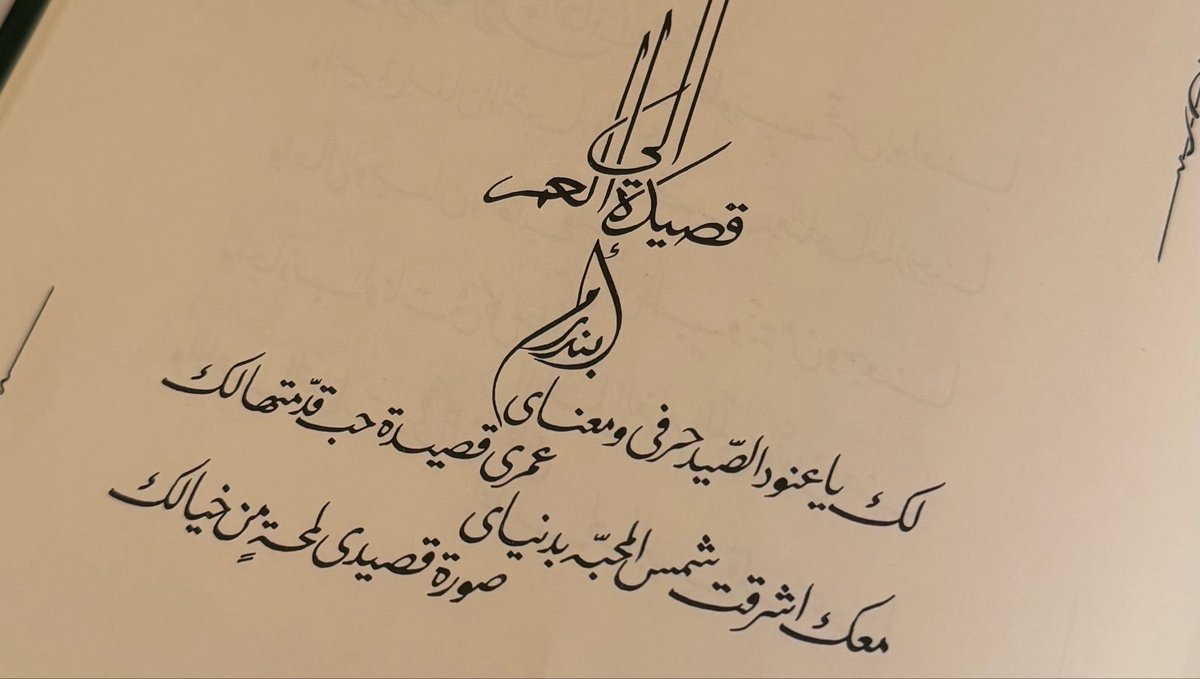 الى
قصيدة العمر
أم بندر
لك يا عنود الصّيد حرفي ومعناي
عمري قصيدة حب قدّمتها لك
معك اشرقت شمس المحبّه بدنياي
صورة قصيدي لمحةٍ من خيالك